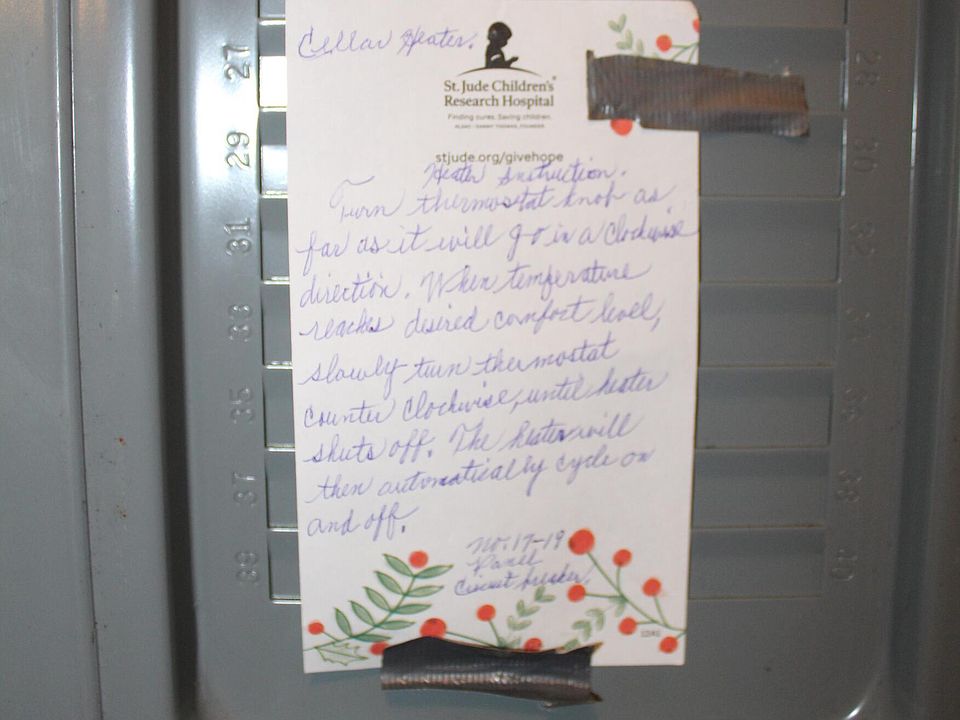 Cellar Heater.
St. Jude Children's
Research Hospital
Finding cures. Saving children.
ALSAC • DANNY THOMAS, FOUNDER
stjude.org/givehope
Heater Instruction.
Turn thermostat knob as
far as it will go in a Clockwise
direction. When temperature
reaches desired comfort level,
slowly turn thermostat
counter clockwise, until heater
shuts off. The heater will
then automatically cycle on
and off.
No. 17-19
Panel
Circuit breaker.
27
29
31
33
35
37
39
28
30
32
34
36
38
40